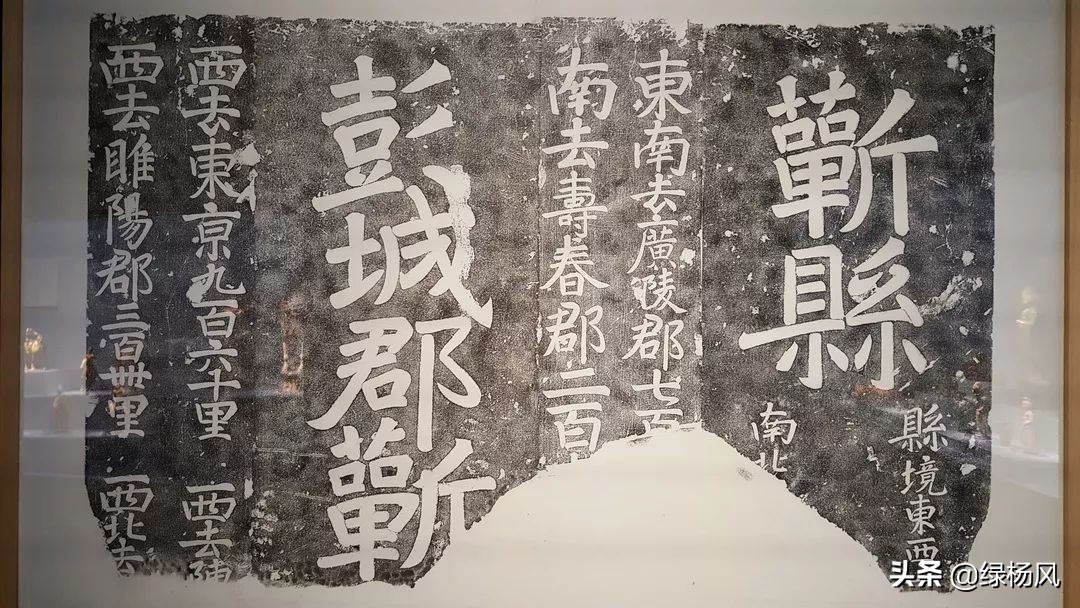 蘄縣
縣境東西
南北
東南去廣陵郡七百
南去壽春郡二百
彭城郡蘄
西去東亰九百六十里 西去陳
西去睢陽郡三百卌里 西北去
头条 @绿杨风